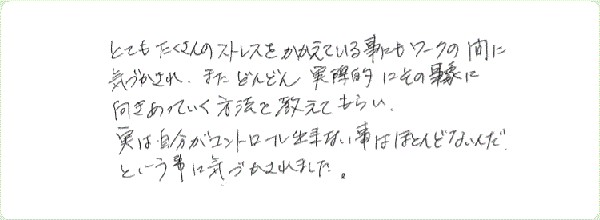 とてもたくさんのストレスをかかえている事にもワークの間に
気づかされ、またどんどん実際的にその事象に
向きあっていく方法を教えてもらい、
実は自分がコントロール出来ない事はほとんどないんだ
という事に気づかされました。